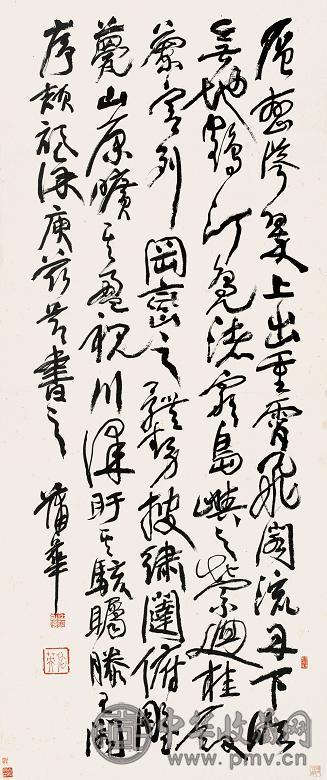 層巒聳翠上出重霄飛閣流丹下臨
無地鶴汀鳧渚窮島嶼之縈迴桂殿
蘭宮列岡巒之體勢披繡闥俯雕
甍山原曠其盈視川澤盱其駭矚滕王閣
序書之
蒲華
中华收藏网
www.pmv.cn